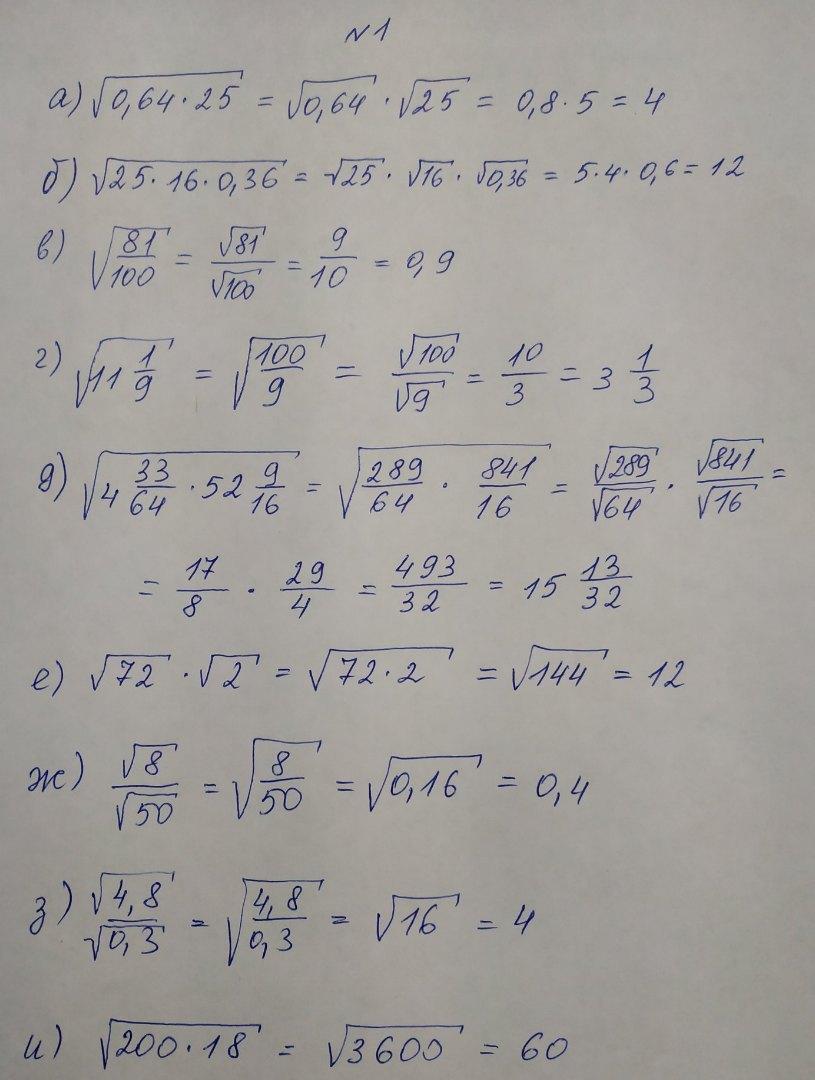 №1
а) √(0,64·25) = √0,64 · √25 = 0,8·5 = 4
б) √(25·16·0,36) = √25 · √16 · √0,36 = 5·4·0,6 = 12
в) √(81/100) = √81/√100 = 9/10 = 0,9
г) √(11 1/9) = √(100/9) = √100/√9 = 10/3 = 3 1/3
д) √(4 33/64 · 52 9/16) = √(289/64 · 841/16) = √289/√64 · √841/√16 =
= 17/8 · 29/4 = 493/32 = 15 13/32
е) √72 · √2 = √(72·2) = √144 = 12
ж) √8/√50 = √(8/50) = √0,16 = 0,4
з) √4,8/√0,3 = √(4,8/0,3) = √16 = 4
и) √(200·18) = √3600 = 60